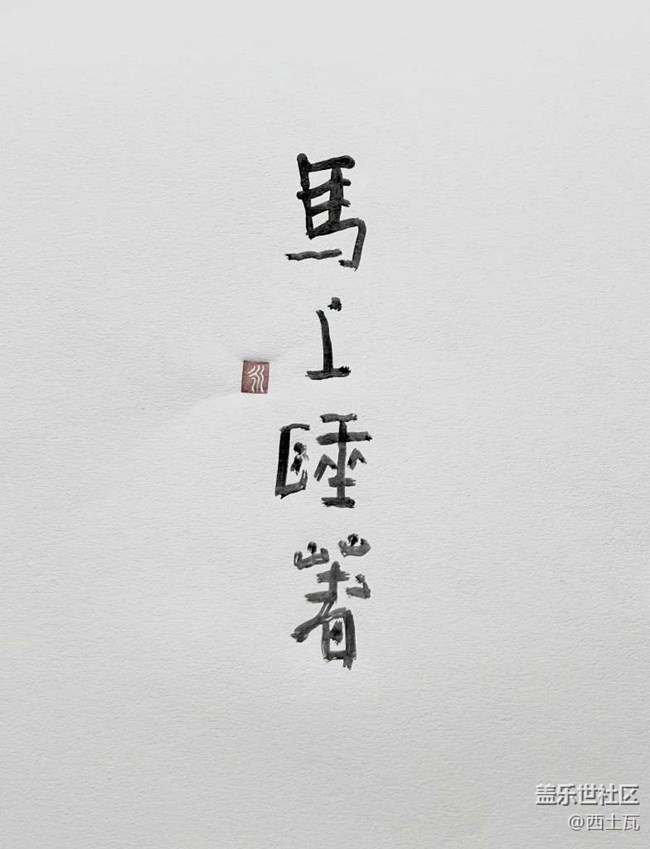 馬上睡著
盖乐世社区
@西土瓦